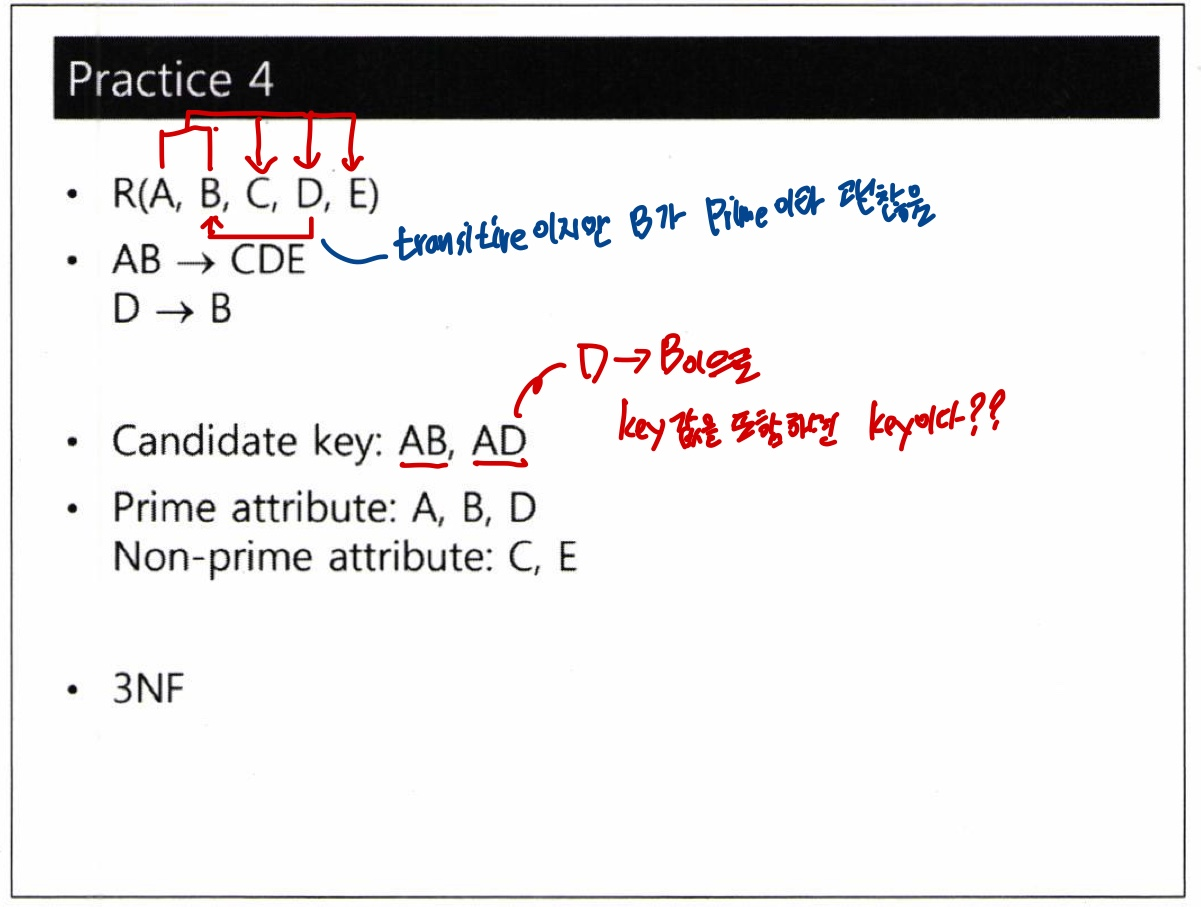 Practice 4
• R(A, B, C, D, E)
transitive이지만 B가 Prime이라 괜찮음
• AB → CDE
D → B
D → B이므로
key 값을 포함하면 key이다??
• Candidate key: AB, AD
• Prime attribute: A, B, D
Non-prime attribute: C, E
• 3NF